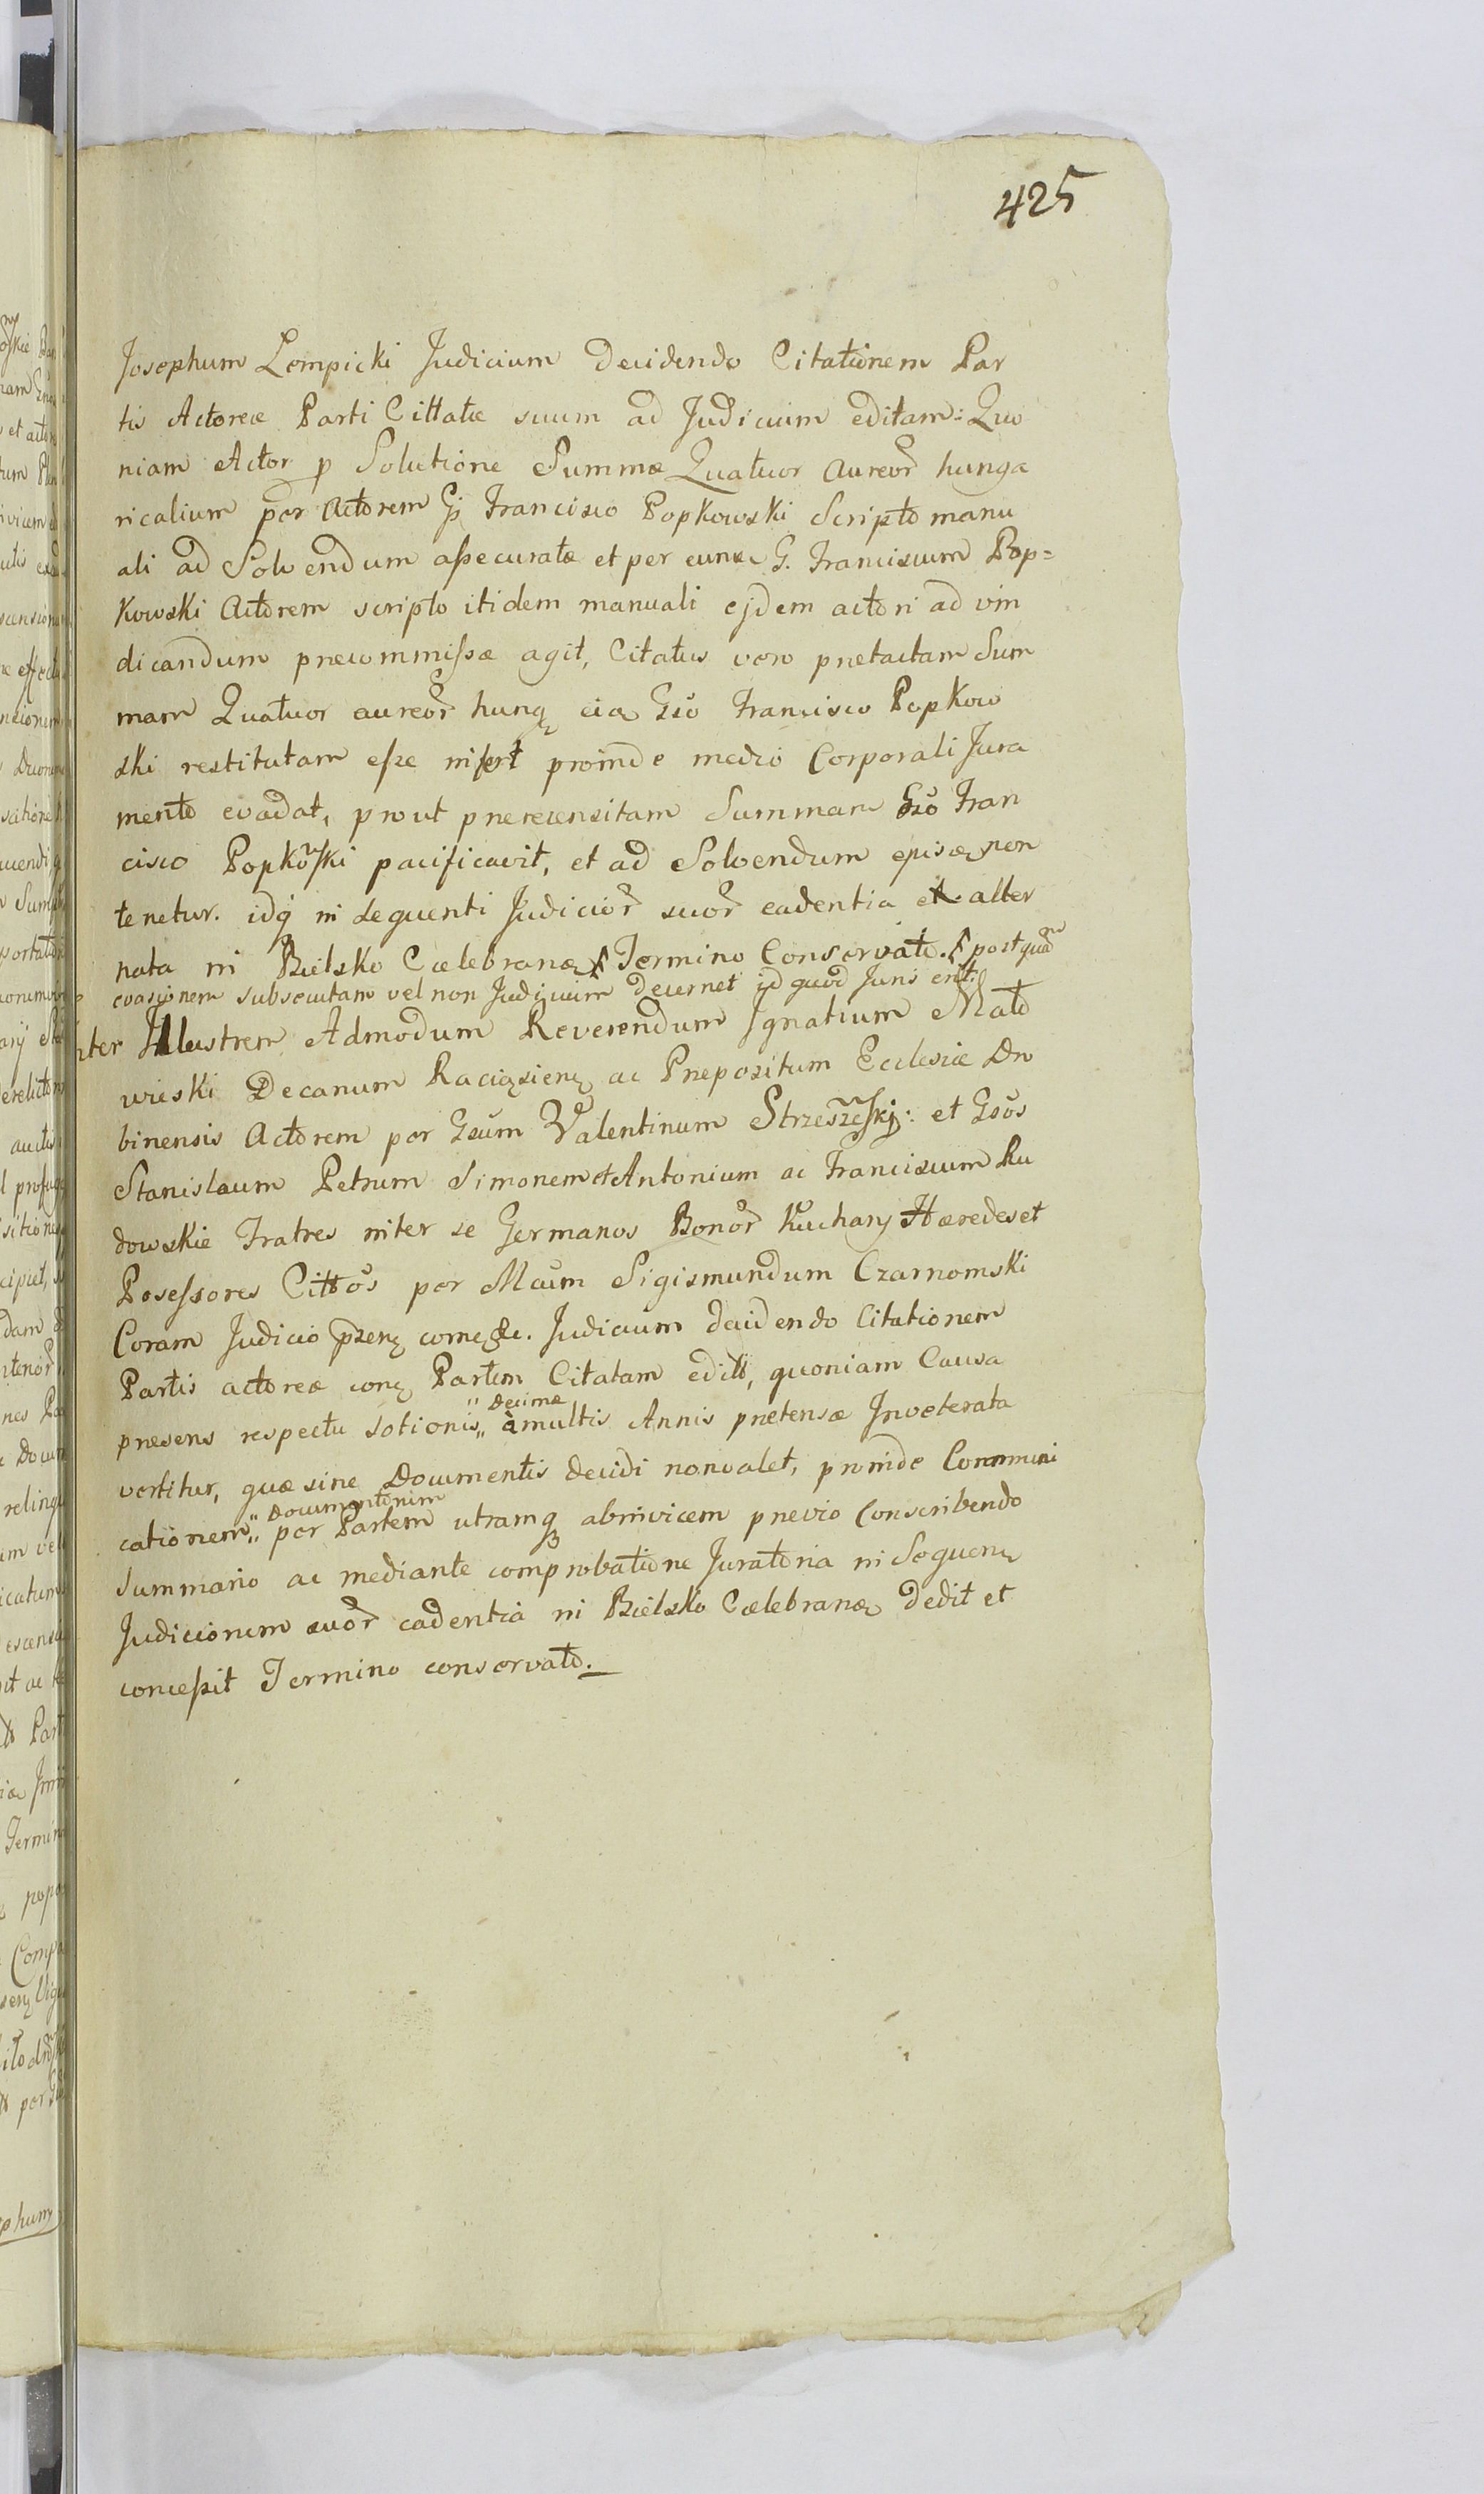 425
Josephum Lempicki Judicium Decidendo Citationem Par
tis Actoreæ Parti Cittatæ suum ad Judicium editam: Quo
niam Actor p Solutione Summæ Quatuor Aureor hunga
ricalium per Actorem G Francisco Popkowski Scripto manu
ali ad Solvendum assecuratæ et per eund G. Franciscum Pop=
kowski Actorem scripto itidem manuali ejdem actori ad vin
dicandum precommissæ agit, Citatus vero pretactam Sum
mam Quatuor aureor hung Gso Francisco Popkow
ski restitutam esse infert proinde medio Corporali Jura
mento evadat, prout prerecensitam Summam Gso Fran
cisco Popkowski pacificavit, et ad Solvendum non
tenetur. idq in sequenti Judicior suor cadentia et alter
nata in Bielsko Cælebran Termino Conservato. postquam
evasionem subsecutam vel non Judicium decernet id quod Juris erit.
Inter Illustrem Admodum Reverendum Ignatium Mato
wieski Decanum Raciązien ac Prepositum Ecclesiæ Dro
binensis Actorem per Gsum Valentinum Strzeszewski: et Gsos
Stanislaum Petrum Simonem et Antonium ac Franciscum Ru
dowskie Fratres inter se Germanos Bonor Kuchary Hæredes et
Posessores Cittos per Mcum Sigismundum Czarnomski
Coram Judicio przen comp &c. Judicium decidendo Citationem
Partis actoreæ con Partem Citatam edit, quoniam Causa
presens respectu sotionis " Decimæ " à multis Annis pretensæ Inveterata
vertitur, quæ sine Documentis decidi non valet, proinde Communi
cationem " Documentorum " per Partem utramq abinvicem previo Conscribendo
Summario ac mediante comprobatione Juratoria in Sequen
Judiciorum suor cadentia in Bielsko Cælebran dedit et
concessit Termino conservato.